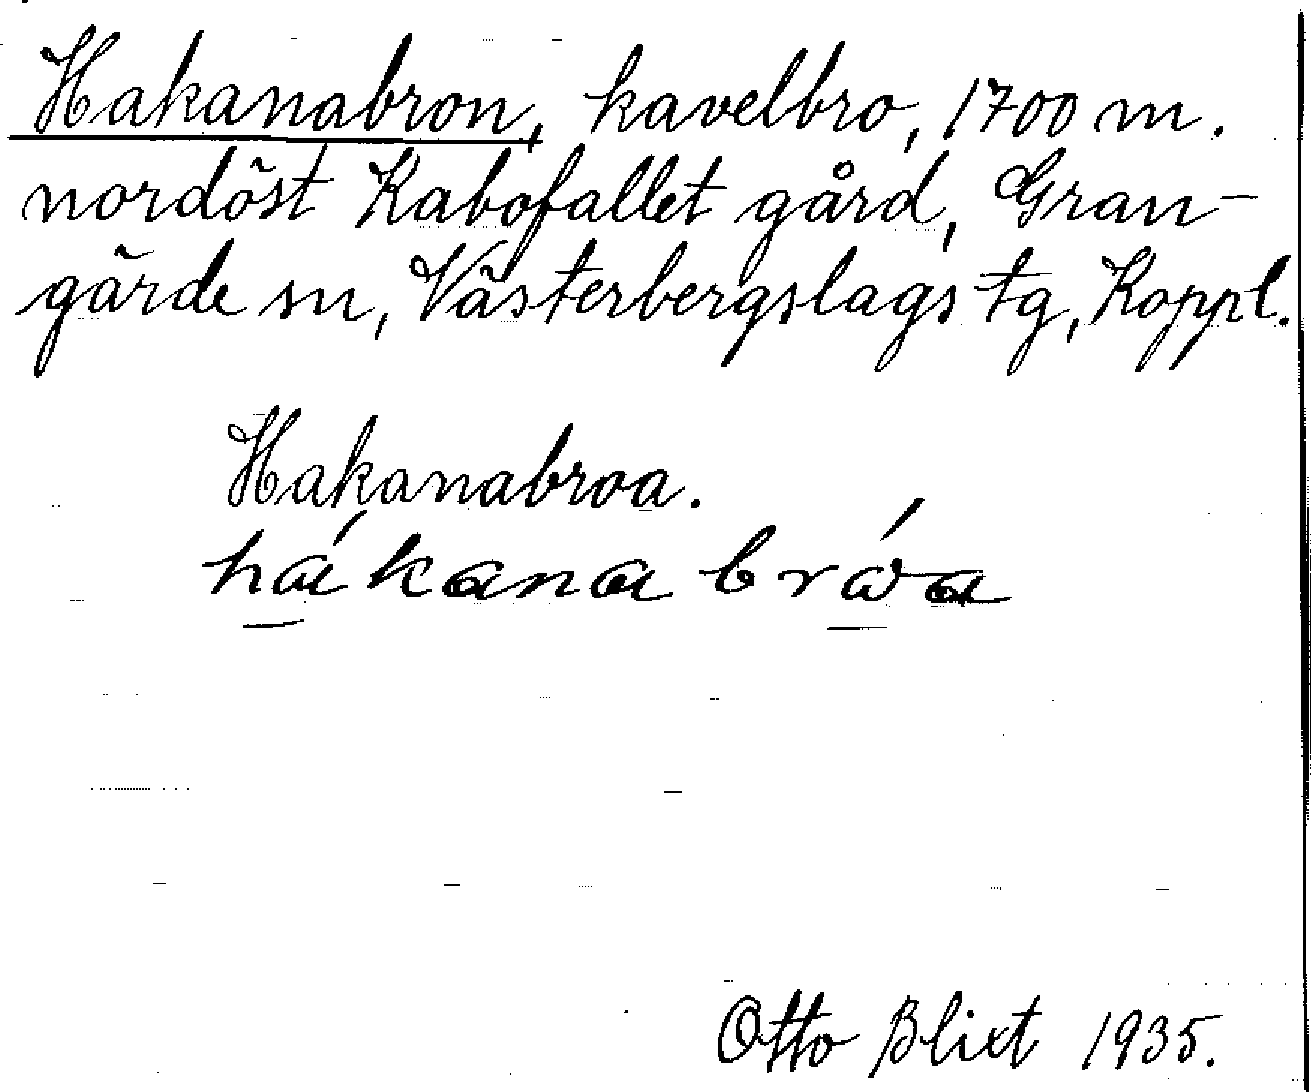 Hakanabron, kavelbro, 1700 m.
nordöst Kabofallet gård, Gran-
gärde sn, Västerbergslags tg, Koppl.
Hakanabroa.
hákana brώa
Otto Blixt 1935.